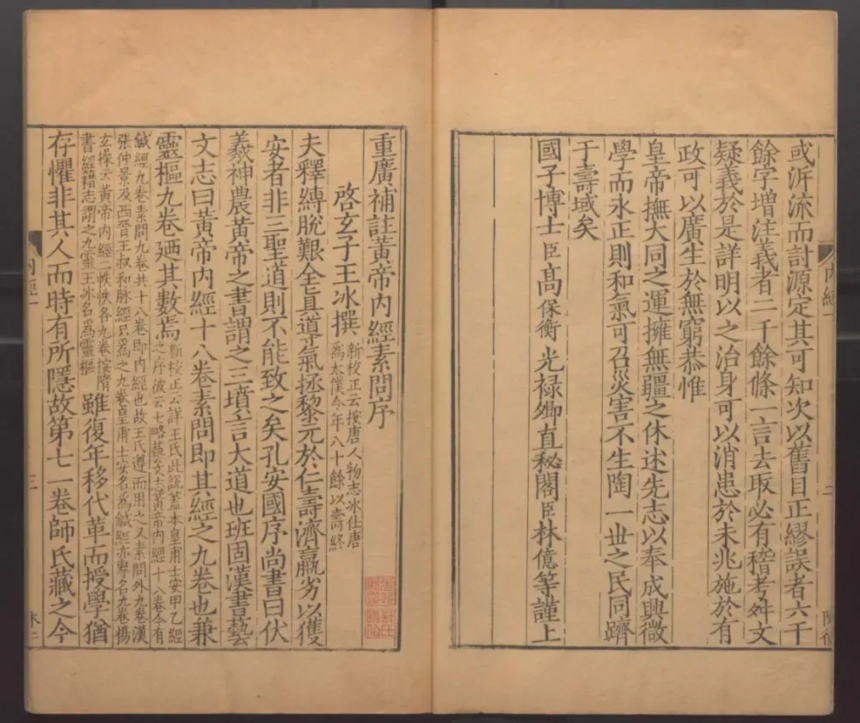 或泝流而討源定其可知次以舊目正繆誤者六千
餘字增注義者二千餘條一言去取必有稽考舛文
疑義於是詳明以之治身可以消患於未兆施於有
政可以廣生於無窮恭惟
皇帝撫大同之運擁無疆之休述先志以奉成興微
學而永正則和氣可召災害不生陶一世之民同躋
于壽域矣
國子博士臣高保衡光禄卿直秘閣臣林億等謹上
內經一
二
重廣補註黃帝內經素問序
啓玄子王冰撰新校正云按唐人物志冰仕唐
爲太僕令年八十餘以壽終
夫釋縛脫艱全真導氣拯黎元於仁壽濟羸劣以獲
安者非三聖道則不能致之矣孔安國序尚書曰伏
羲神農黃帝之書謂之三墳言大道也班固漢書藝
文志曰黃帝內經十八卷素問即其經之九卷也兼
靈樞九卷廼其數焉新校正云詳王氏此說蓋本皇甫士安甲乙經
之序彼云七略藝文志黃帝內經十八卷今有
鍼經九卷素問九卷共十八卷即內經也故王氏遵而用之又素問外九卷漢
張仲景及西晉王叔和脉經只爲之九卷皇甫士安名爲鍼經亦專名九卷楊
玄操云黃帝內經二帙帙各九卷按隋
書經籍志謂之九靈王冰名爲靈樞
雖復年移代革而授學猶
存懼非其人而時有所隱故第七一卷師氏藏之今
內經一
三